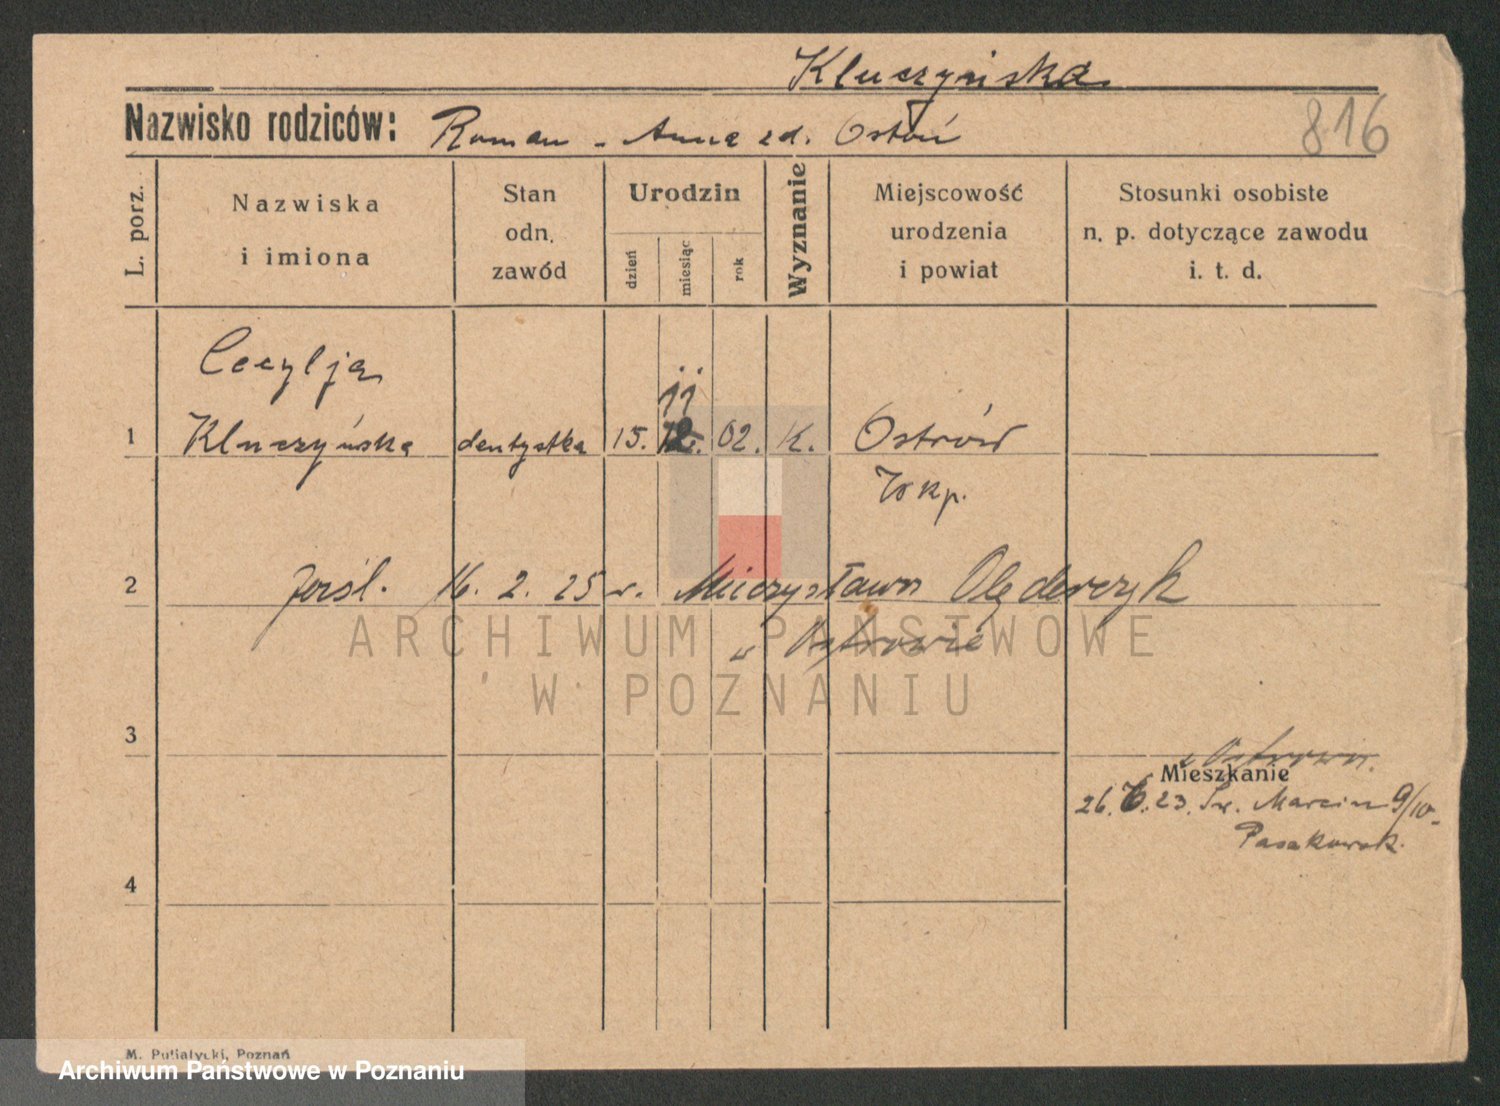 Kluczyńska
Nazwisko rodziców: Roman - Anna zd. Ostoń
816
L. porz.
Nazwiska
i imiona
Stan
odn.
zawód
Urodzin
dzień
miesiąc
rok
Wyznanie
Miejscowość
urodzenia
i powiat
Stosunki osobiste
n. p. dotyczące zawodu
i. t. d.
Cecylja
11
1 Kluczyńska dentystka 15. 12. 02. K. Ostrów
Wkp.
2 pośl. 16. 2. 25 r. Mieczysława Olęderczyk
w Ostrowie
ARCHIWUM PAŃSTWOWE
W POZNANIU
3
w Ostrowie.
Mieszkanie
26. 6. 23. Św. Marcin 9/10
4
M. Putiatycki, Poznań
Archiwum Państwowe w Poznaniu